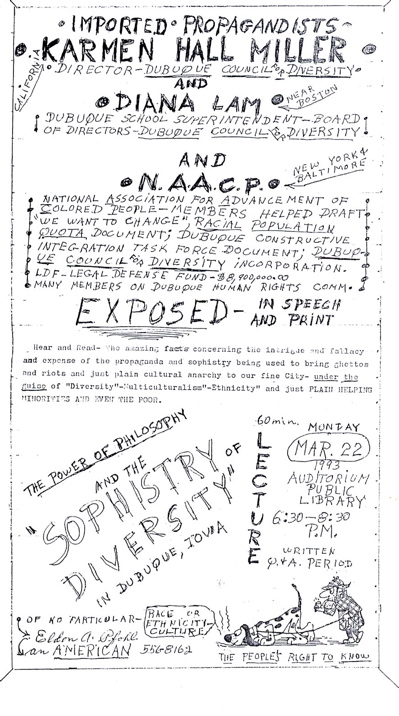 • IMPORTED • PROPAGANDISTS •
CALIFORNIA
• KARMEN HALL MILLER •
• DIRECTOR-DUBUQUE COUNCIL for DIVERSITY •
AND
• DIANA LAM •
NEAR BOSTON
DUBUQUE SCHOOL SUPERINTENDENT-BOARD
OF DIRECTORS-DUBUQUE COUNCIL for DIVERSITY
AND
• N.A.A.C.P. •
NEW YORK & BALTIMORE
NATIONAL ASSOCIATION FOR ADVANCEMENT OF
COLORED PEOPLE-MEMBERS HELPED DRAFT
"WE WANT TO CHANGE", RACIAL POPULATION
QUOTA DOCUMENT; DUBUQUE CONSTRUCTIVE
INTEGRATION TASK FORCE DOCUMENT; DUBUQ-
UE COUNCIL for DIVERSITY INCORPORATION.
LDF-LEGAL DEFENSE FUND-$8,900,000.00
MANY MEMBERS ON DUBUQUE HUMAN RIGHTS COMM.
EXPOSED- IN SPEECH
AND PRINT
Hear and Read- The amazing facts concerning the intrigue and fallacy
and expense of the propaganda and sophistry being used to bring ghettos
and riots and just plain cultural anarchy to our fine City- under the
guise of "Diversity"-Multiculturalism"-Ethnicity" and just PLAIN HELPING
MINORITIES AND EVEN THE POOR.
THE POWER OF PHILOSOPHY
AND THE
"SOPHISTRY OF
DIVERSITY"
IN DUBUQUE, IOWA
60 min.
LECTURE
MONDAY
MAR. 22
1993
AUDITORIUM
PUBLIC
LIBRARY
6:30-8:30
P.M.
WRITTEN
Q.&A. PERIOD
OF NO PARTICULAR-
RACE OR
ETHNICITY-
CULTURE/
Eldon A.
an AMERICAN 556-8162
THE PEOPLE'S RIGHT TO KNOW